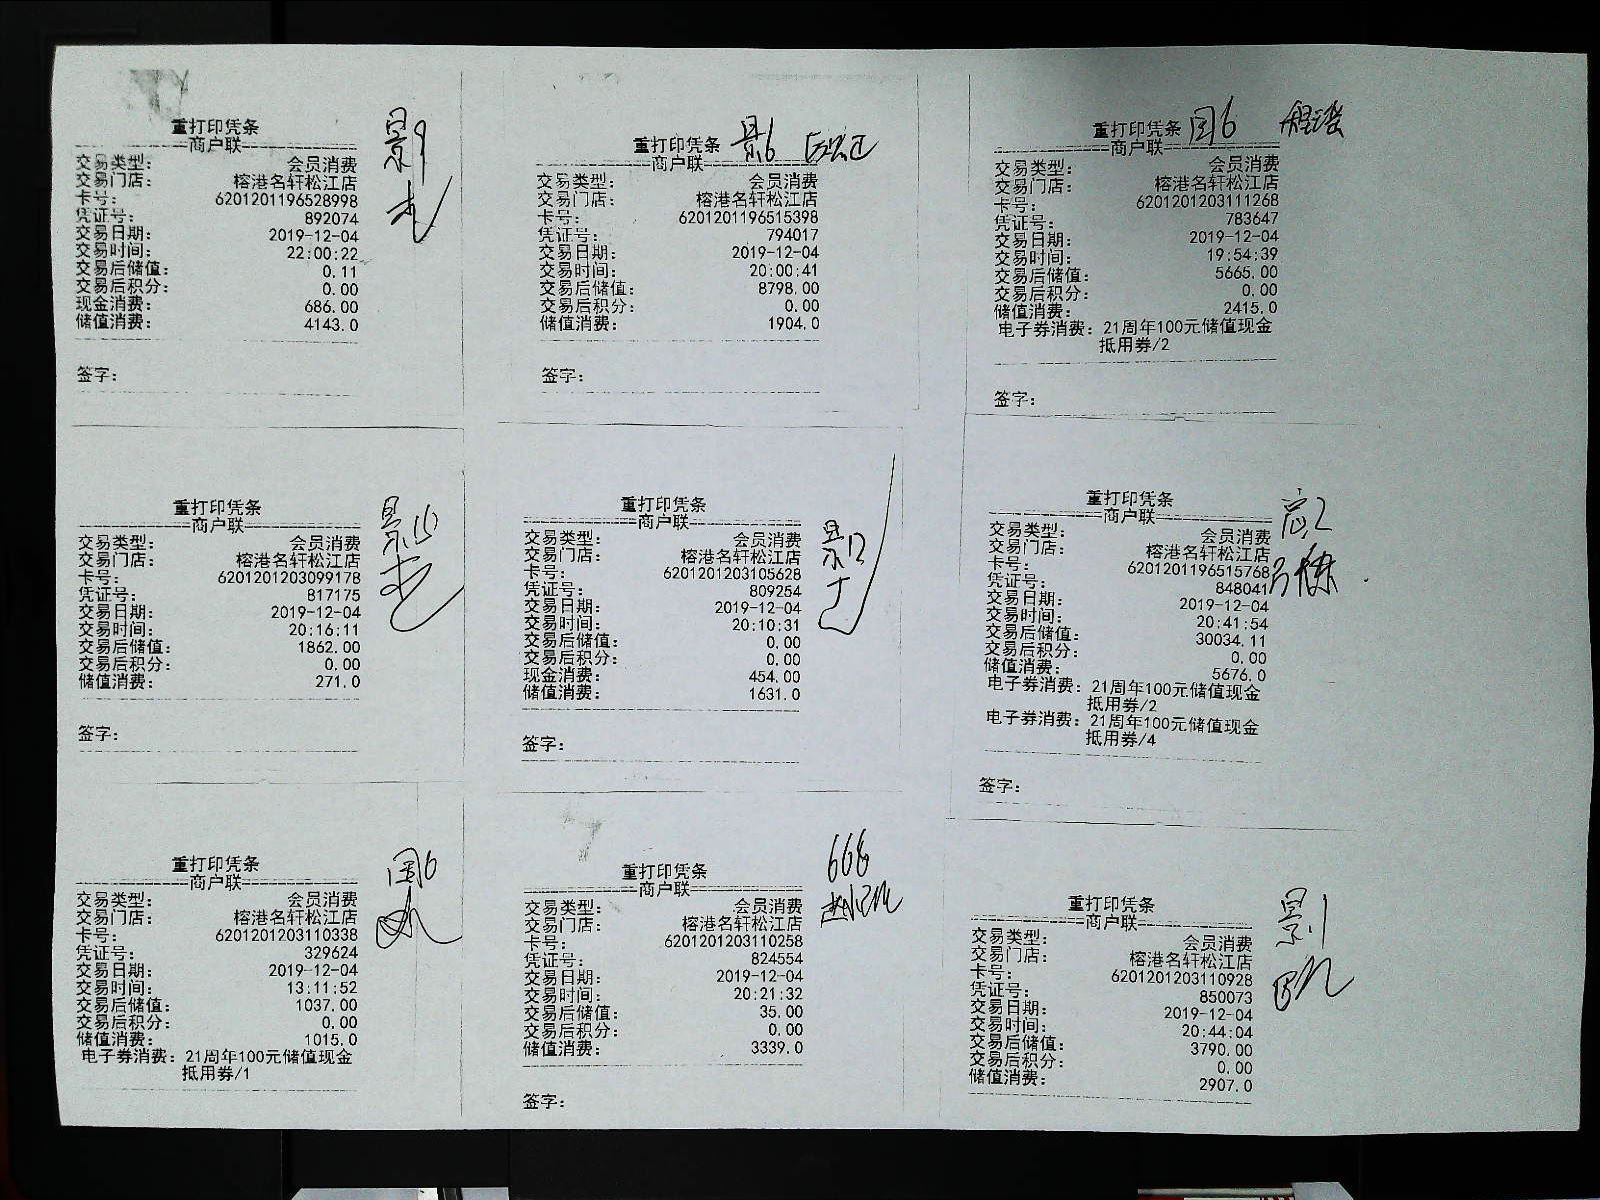 重打印凭条
商户联
交易类型： 会员消费
交易门店： 榕港名轩松江店
卡号： 6201201196528998
凭证号： 892074
交易日期： 2019-12-04
交易时间： 22:00:22
交易后储值： 0.11
交易后积分： 0.00
现金消费： 686.00
储值消费： 4143.0
签字：
景9
重打印凭条 景6
商户联
交易类型： 会员消费
交易门店： 榕港名轩松江店
卡号： 6201201196515398
凭证号： 794017
交易日期： 2019-12-04
交易时间： 20:00:41
交易后储值： 8798.00
交易后积分： 0.00
储值消费： 1904.0
签字：
重打印凭条 国6
商户联
交易类型： 会员消费
交易门店： 榕港名轩松江店
卡号： 6201201203111268
凭证号： 783647
交易日期： 2019-12-04
交易时间： 19:54:39
交易后储值： 5665.00
交易后积分： 0.00
储值消费： 2415.0
电子券消费：21周年100元储值现金
抵用券/2
签字：
重打印凭条
商户联
交易类型： 会员消费
交易门店： 榕港名轩松江店
卡号： 6201201203099178
凭证号： 817175
交易日期： 2019-12-04
交易时间： 20:16:11
交易后储值： 1862.00
交易后积分： 0.00
储值消费： 271.0
签字：
重打印凭条
商户联
交易类型： 会员消费
交易门店： 榕港名轩松江店
卡号： 6201201203105628
凭证号： 809254
交易日期： 2019-12-04
交易时间： 20:10:31
交易后储值： 0.00
交易后积分： 0.00
现金消费： 454.00
储值消费： 1631.0
签字：
景12
重打印凭条
商户联
交易类型： 会员消费
交易门店： 榕港名轩松江店
卡号： 6201201196515768
凭证号： 848041
交易日期： 2019-12-04
交易时间： 20:41:54
交易后储值： 30034.11
交易后积分： 0.00
储值消费： 5676.0
电子券消费：21周年100元储值现金
抵用券/2
电子券消费：21周年100元储值现金
抵用券/4
签字：
重打印凭条
商户联
交易类型： 会员消费
交易门店： 榕港名轩松江店
卡号： 6201201203110338
凭证号： 329624
交易日期： 2019-12-04
交易时间： 13:11:52
交易后储值： 1037.00
交易后积分： 0.00
储值消费： 1015.0
电子券消费：21周年100元储值现金
抵用券/1
国6
重打印凭条
商户联
交易类型： 会员消费
交易门店： 榕港名轩松江店
卡号： 6201201203110258
凭证号： 824554
交易日期： 2019-12-04
交易时间： 20:21:32
交易后储值： 35.00
交易后积分： 0.00
储值消费： 3339.0
签字：
666
重打印凭条
商户联
交易类型： 会员消费
交易门店： 榕港名轩松江店
卡号： 6201201203110928
凭证号： 850073
交易日期： 2019-12-04
交易时间： 20:44:04
交易后储值： 3790.00
交易后积分： 0.00
储值消费： 2907.0
景1